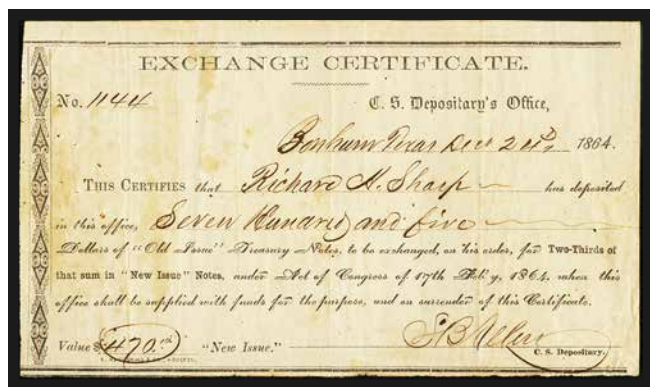 EXCHANGE CERTIFICATE.
No. 1144 C. S. Depositary's Office,
Bonham Texas Decr 24th 1864.
THIS CERTIFIES that Richard H. Sharp has deposited
in this office, Seven Hundred and five
Dollars of "Old Issue" Treasury Notes, to be exchanged, on his order, for Two-Thirds of
that sum in "New Issue" Notes, under Act of Congress of 17th Feb'y, 1864, when this
office shall be supplied with funds for the purpose, and on surrender of this Certificate.
Value $ 470.00 "New Issue."
C. S. Depositary.